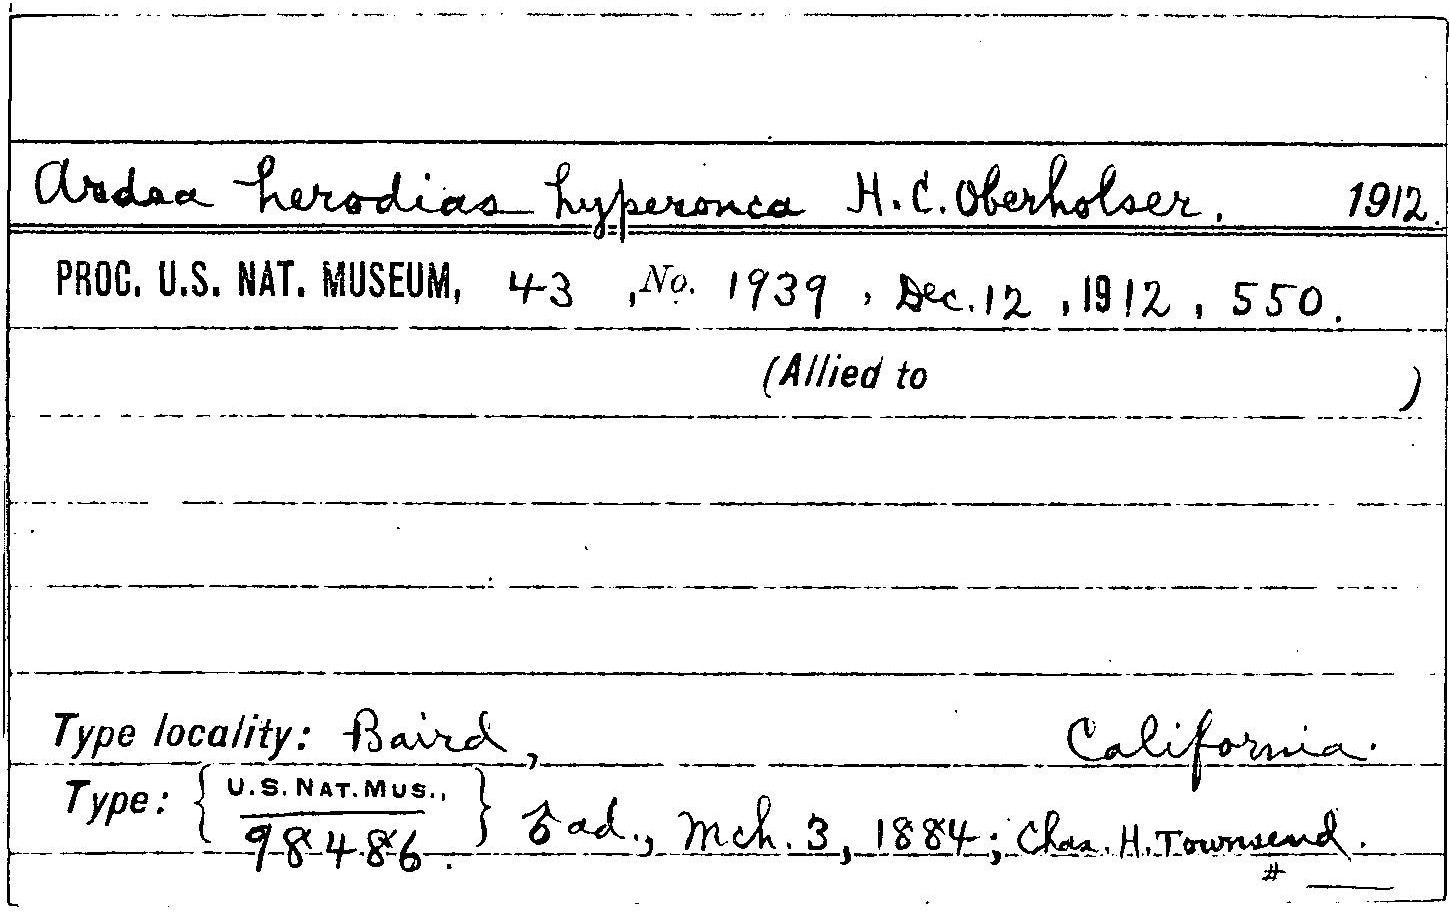 Ardea herodias hyperonca H. C. Oberholser. 1912.
PROC. U.S. NAT. MUSEUM, 43, No. 1939, Dec. 12, 1912, 550.
(Allied to )
Type locality: Baird, California.
Type: { U.S. NAT. MUS., 98486. } ♂ ad., Mch. 3, 1884; Chas. H. Townsend.
#